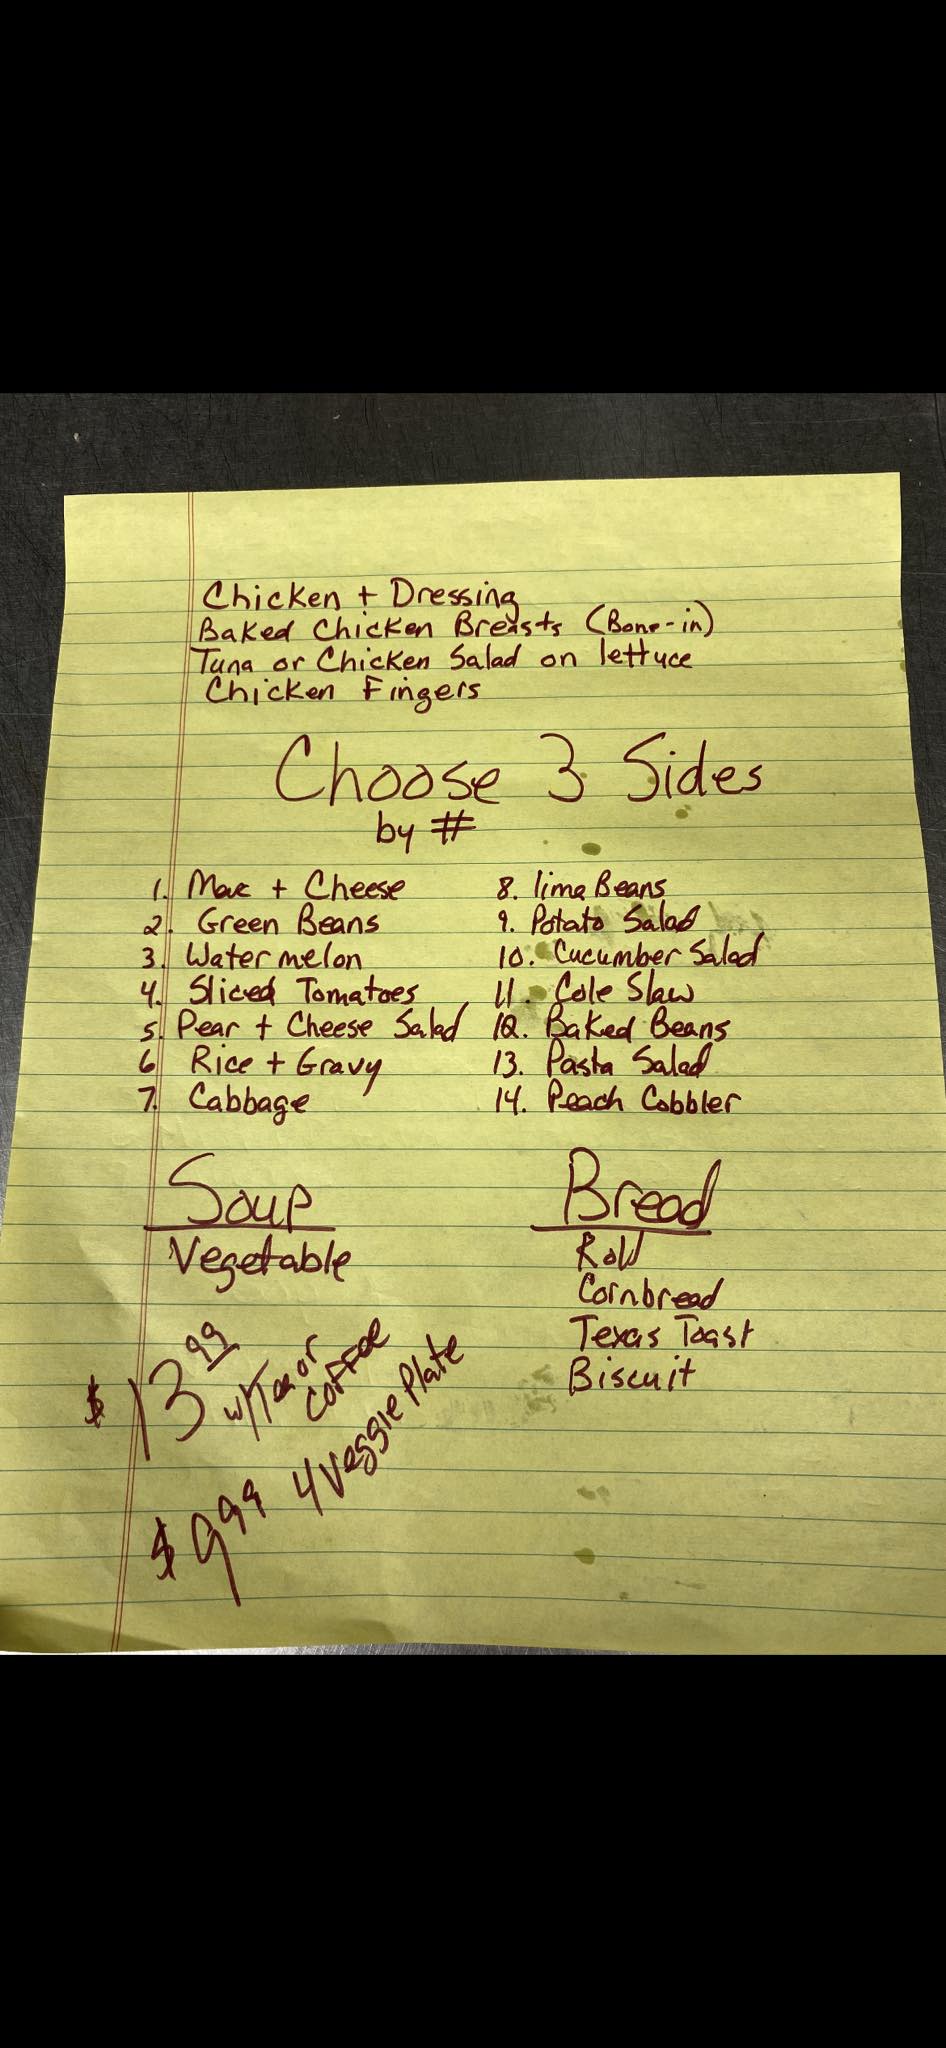 Chicken + Dressing
Baked Chicken Breasts (Bone-in)
Tuna or Chicken Salad on lettuce
Chicken Fingers
Choose 3 Sides
by #
1. Mac + Cheese
2. Green Beans
3. Watermelon
4. Sliced Tomatoes
5. Pear + Cheese Salad
6 Rice + Gravy
7. Cabbage
8. lima Beans
9. Potato Salad
10. Cucumber Salad
11. Cole Slaw
12. Baked Beans
13. Pasta Salad
14. Peach Cobbler
Soup
Vegetable
Bread
Roll
Cornbread
Texas Toast
Biscuit
$13.99 w/Tea or
Coffee
$9.99 4 Veggie Plate